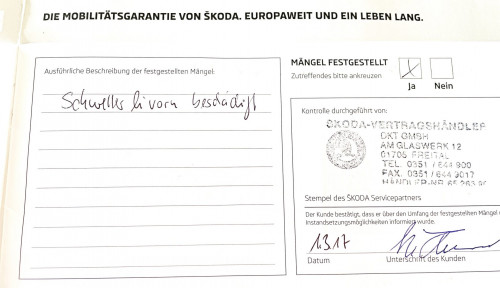 DIE MOBILITÄTSGARANTIE VON ŠKODA. EUROPAWEIT UND EIN LEBEN LANG.
Ausführliche Beschreibung der festgestellten Mängel:
Schweller li vorn beschädigt
MÄNGEL FESTGESTELLT
Zutreffendes bitte ankreuzen
Ja Nein
Kontrolle durchgeführt von:
ŠKODA-VERTRAGSHÄNDLER
GMBH
AM GLASWERK 12
01705 FREITAL
TEL. 0351 / 644 900
FAX. 0351 / 644 9017
HÄNDLER-NR
Stempel des ŠKODA Servicepartners
Der Kunde bestätigt, dass er über den Umfang der festgestellten Mängel
Instandsetzungsmöglichkeiten informiert wurde.
1.3.17
Datum Unterschrift des Kunden